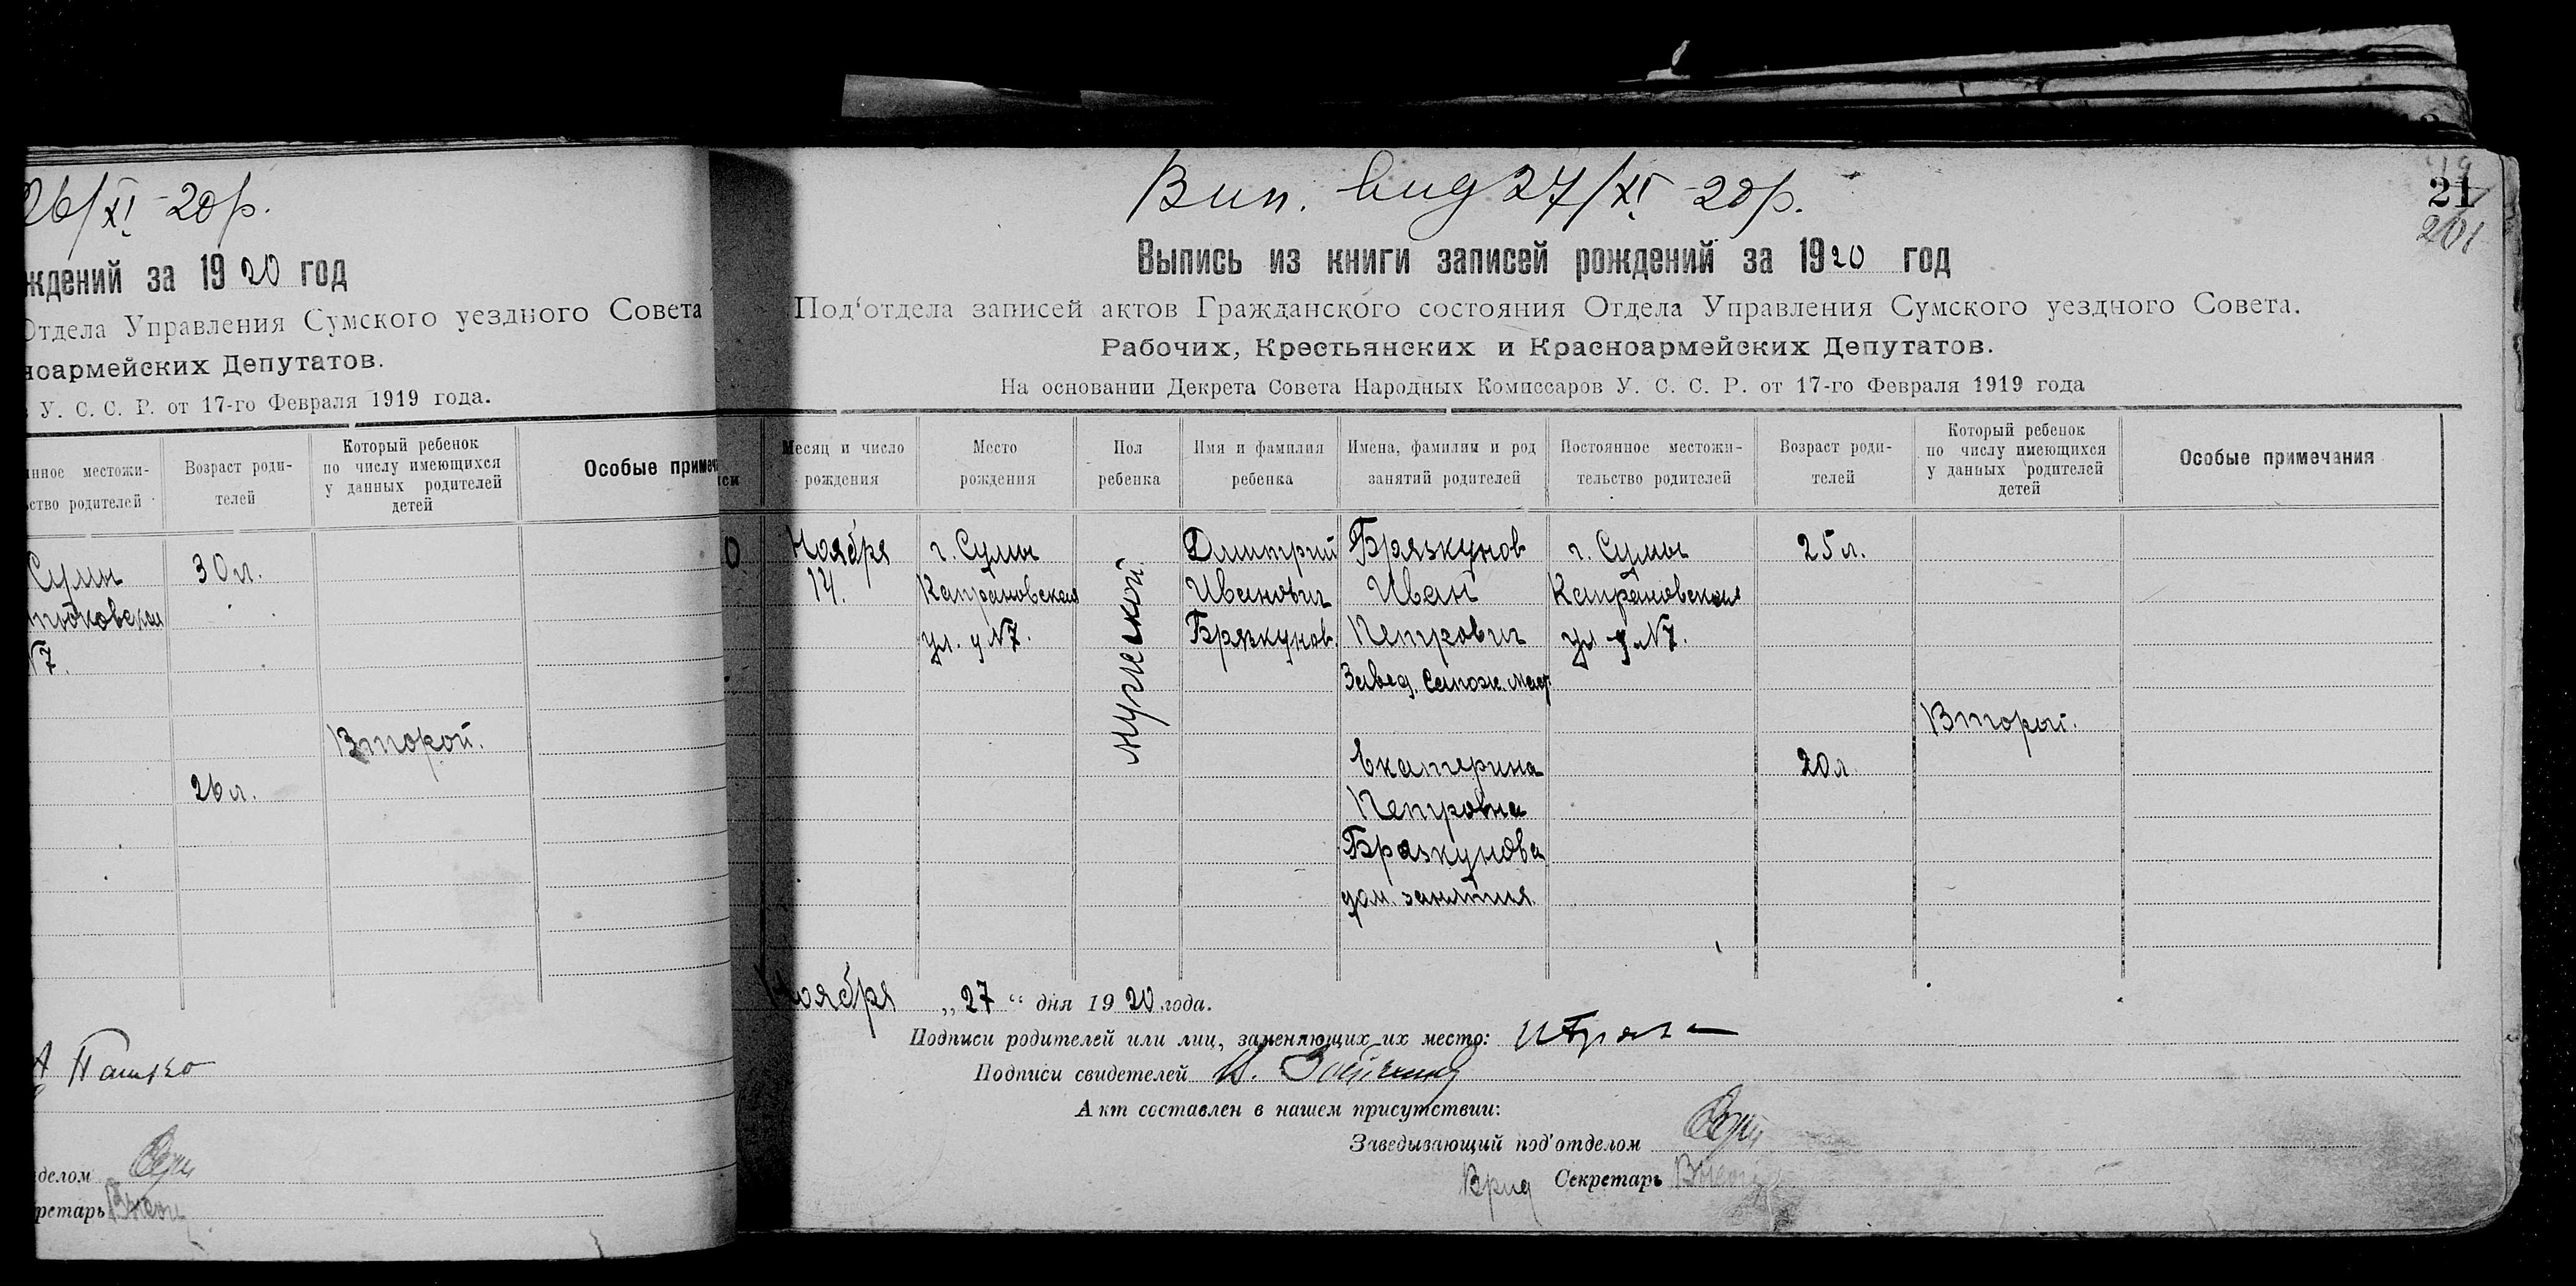 26/XI -20р.
ждений за 1920 год
Отдела Управления Сумского уездного Совета
ноармейских Депутатов.
У. С. С. Р. от 17-го Февраля 1919 года.
нное местожи-
ство родителей
Возраст роди-
телей
Который ребенок
по числу имеющихся
у данных родителей
детей
Особые примеч
Сумы
30 л.
N7.
Второй.
26 л.
А Пашко
делом
ретарь
Вип. вид 27/XI -20р.
21
201
Выпись из книги записей рождений за 1920 год
Под‘отдела записей актов Гражданского состояния Отдела Управления Сумского уездного Совета.
Рабочих, Крестьянских и Красноармейских Депутатов.
На основании Декрета Совета Народных Комиссаров У. С. С. Р. от 17-го Февраля 1919 года
Месяц и число
рождения
Место
рождения
Пол
ребенка
Имя и фамилия
ребенка
Имена, фамилии и род
занятий родителей
Постоянное местожи-
тельство родителей
Возраст роди-
телей
Который ребенок
по числу имеющихся
у данных родителей
детей
Особые примечания
Ноября
14.
г. Сумы
Капрановская
ул. д N7.
мужеской
Димитрий
Иванович
Брязкунов.
Брязкунов
Иван
Петрович
Завед. Сапож. Маст.
Екатерина
Петровна
Брязкунова
дом. занятия.
г. Сумы
Капрановская
ул д N7.
25 л.
20 л.
Второй.
Ноября „27“ дня 1920 года.
Подписи родителей или лиц, заменяющих их место:
Подписи свидетелей
Акт составлен в нашем присутствии:
Заведывающий под‘отделом
Врид Секретарь